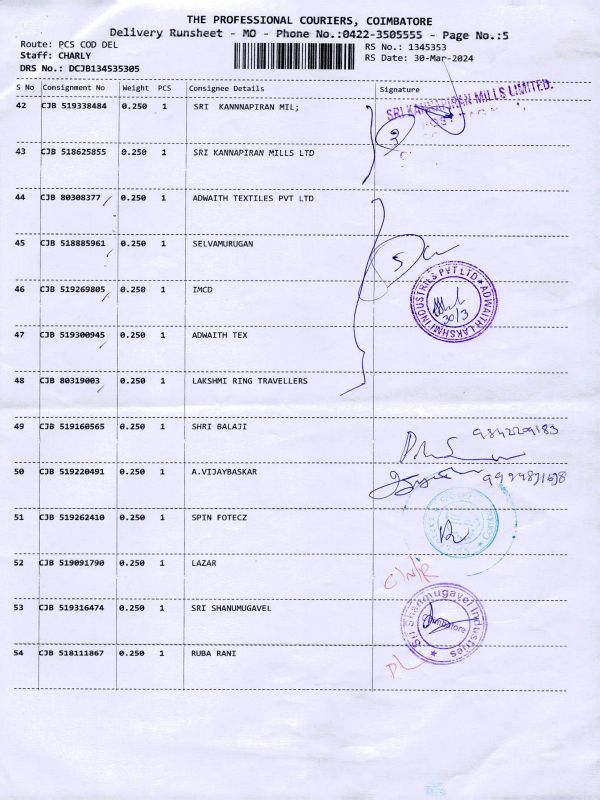 THE PROFESSIONAL COURIERS, COIMBATORE
Delivery Runsheet - MO - Phone No.:0422-3505555 - Page No.:5
Route: PCS COD DEL
RS No.: 1345353
Staff: CHARLY
RS Date: 30-Mar-2024
DRS No.: DCJB134535305
S No Consignment No Weight PCS Consignee Details Signature
42 CJB 519338484 0.250 1 SRI KANNNAPIRAN MIL;
SRI KANNAPIRAN MILLS LIMITED.
3
43 CJB 518625855 0.250 1 SRI KANNAPIRAN MILLS LTD
44 CJB 80308377 0.250 1 ADWAITH TEXTILES PVT LTD
45 CJB 518885961 0.250 1 SELVAMURUGAN
5
46 CJB 519269805 0.250 1 IMCD
ADWAITH LAKSHMI INDUSTRIES PVT LTD
30/3
47 CJB 519300945 0.250 1 ADWAITH TEX
48 CJB 80319003 0.250 1 LAKSHMI RING TRAVELLERS
49 CJB 519160565 0.250 1 SHRI BALAJI
50 CJB 519220491 0.250 1 A.VIJAYBASKAR
51 CJB 519262410 0.250 1 SPIN FOTECZ
52 CJB 519091790 0.250 1 LAZAR
53 CJB 519316474 0.250 1 SRI SHANUMUGAVEL
Sri Shanmugavel Industries
Coimbatore
54 CJB 518111867 0.250 1 RUBA RANI
DL